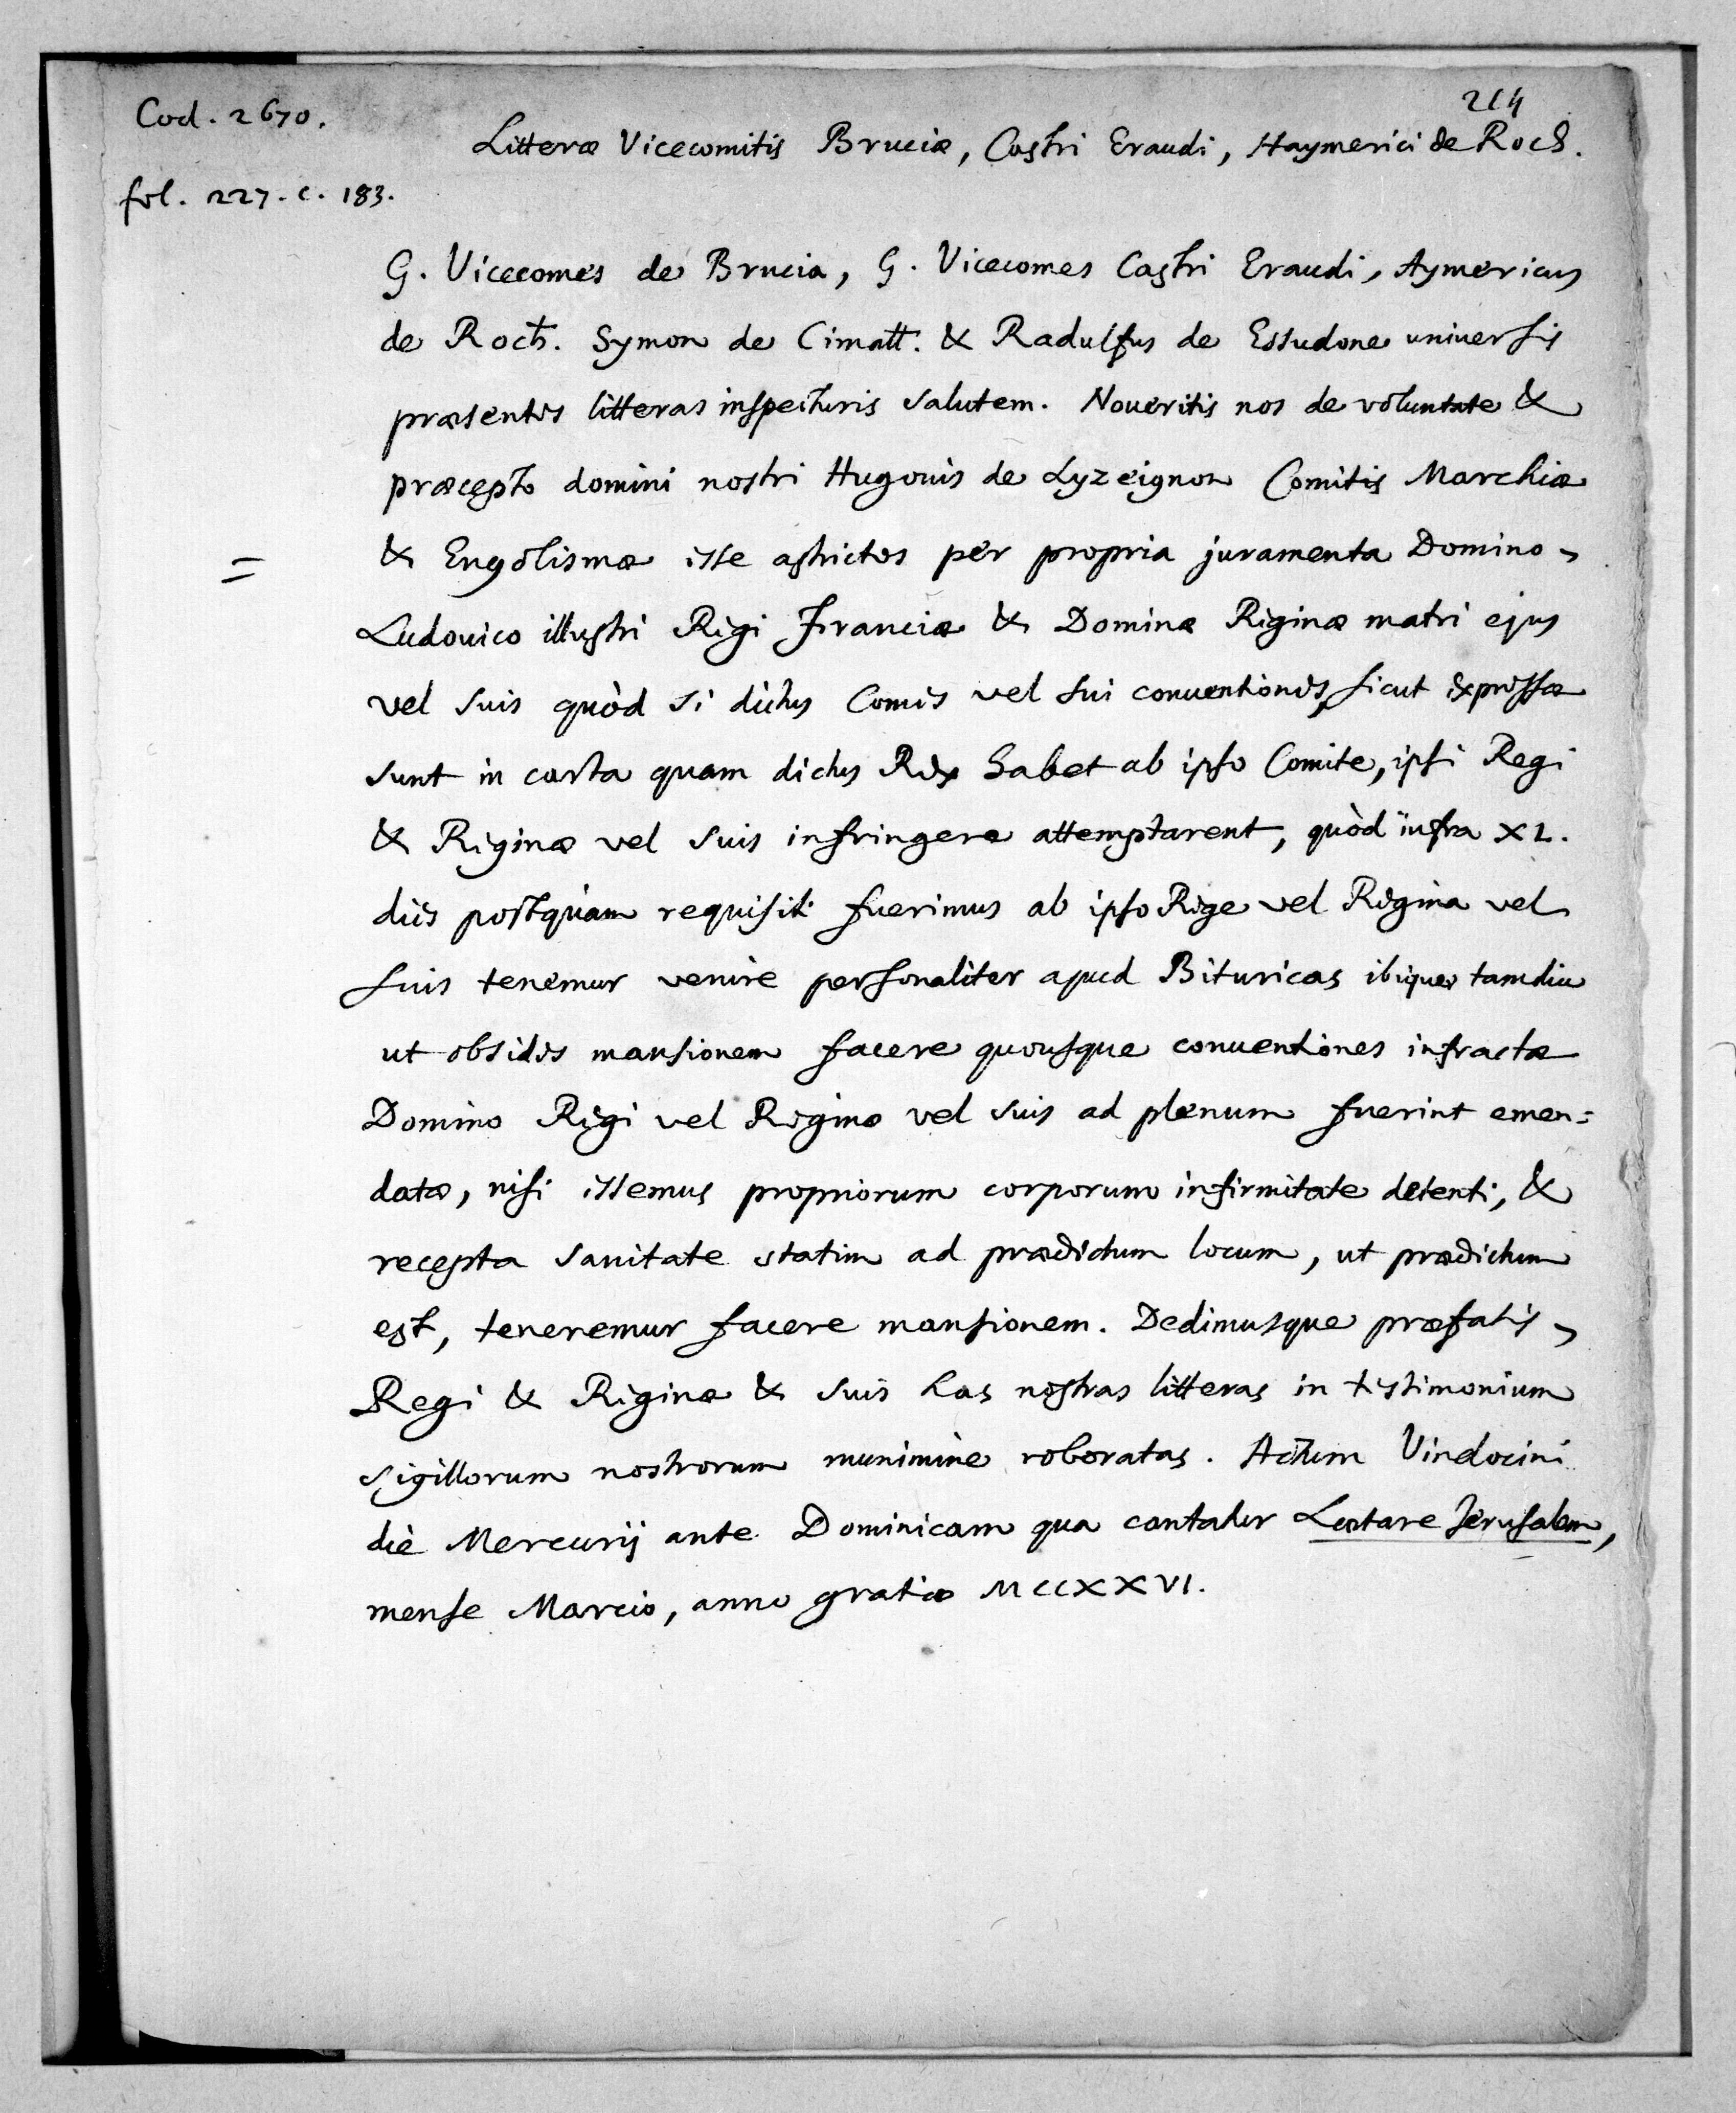 214
Cod. 2670.
Litteræ Vicecomitis Bruciæ, Castri Eraudi, Haymerici de Roch.
fol. 227. c. 183.
G. Vicecomes de Brucia, G. Vicecomes Castri Eraudi, Aymericus
de Roch. Symon de Cimatt. & Radulfus de Essudone universis
præsentes litteras inspecturis salutem. Noveritis nos de voluntate &
præcepto domini nostri Hugonis de Lyzeignon Comitis Marchiæ
& Engolismæ esse astrictos per propria juramenta Domino
Ludovico illustri Regi Franciæ & Dominæ Reginæ matri ejus
vel suis quòd si dictus Comes vel sui conventiones, sicut expressæ
sunt in carta quam dictus Rex habet ab ipso Comite, ipsi Regi
& Reginæ vel suis infringere attemptarent, quòd infra XL.
dies postquam requisiti fuerimus ab ipso Rege vel Regina vel
suis tenemur venire personaliter apud Bituricas ibique tamdiu
ut obsides mansionem facere quousque conventiones infractæ
Domino Regi vel Reginæ vel suis ad plenum fuerint emen-
datæ, nisi essemus propriorum corporum infirmitate detenti, &
recepta sanitate statim ad prædictum locum, ut prædictum
est, teneremur facere mansionem. Dedimusque præfatis
Regi & Reginæ & suis has nostras litteras in testimonium
sigillorum nostrorum munimine roboratas. Actum Vindocini
die Mercurij ante Dominicam qua cantatur Lætare Jerusalem,
mense Marcio, anno gratiæ MCCXXVI.